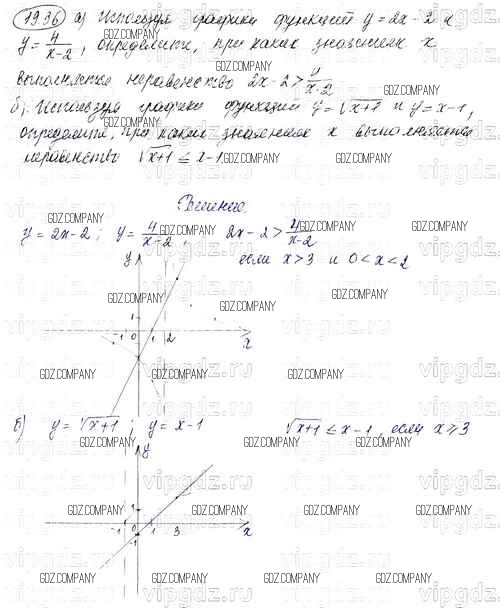 19.36 а) Используя графики функций y = 2x - 2 и
y = 4/(x-2), определите, при каких значениях x
выполняется неравенство 2x - 2 > 4/(x-2)
б) Используя графики функций y = √(x+1) и y = x - 1,
определите, при каких значениях x выполняется
неравенство √(x+1) ≤ x - 1
GDZ.COMPANY
Решение.
y = 2x - 2 ; y = 4/(x-2), 2x - 2 > 4/(x-2)
если x > 3 и 0 < x < 2
y
1
-1 0 1 2 x
б) y = √(x+1) ; y = x - 1 √(x+1) ≤ x - 1, если x ⩾ 3
y
1
-1 0 1 3 x
-1
vipgdz.ru